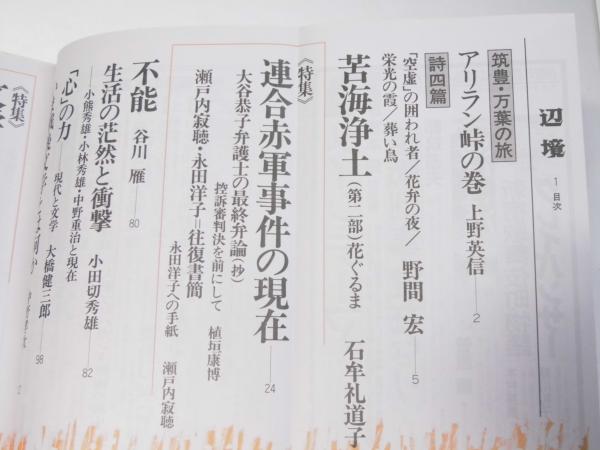 辺境
1 目次
筑豊・万葉の旅
アリラン峠の巻 上野英信 2
詩四篇
「空虚」の囲われ者／花弁の夜／
栄光の霞／葬い鳥
野間 宏 5
苦海浄土(第二部)花ぐるま 石牟礼道子
《特集》
連合赤軍事件の現在 24
大谷恭子弁護士の最終弁論(抄)
控訴審判決を前にして 植垣康博
瀬戸内寂聴・永田洋子＝往復書簡
永田洋子への手紙 瀬戸内寂聴
不能 谷川 雁 80
生活の茫然と衝撃 小田切秀雄 82
小熊秀雄・小林秀雄・中野重治と現在
「心」の力 大橋健三郎 98
現代と文学
《特集》